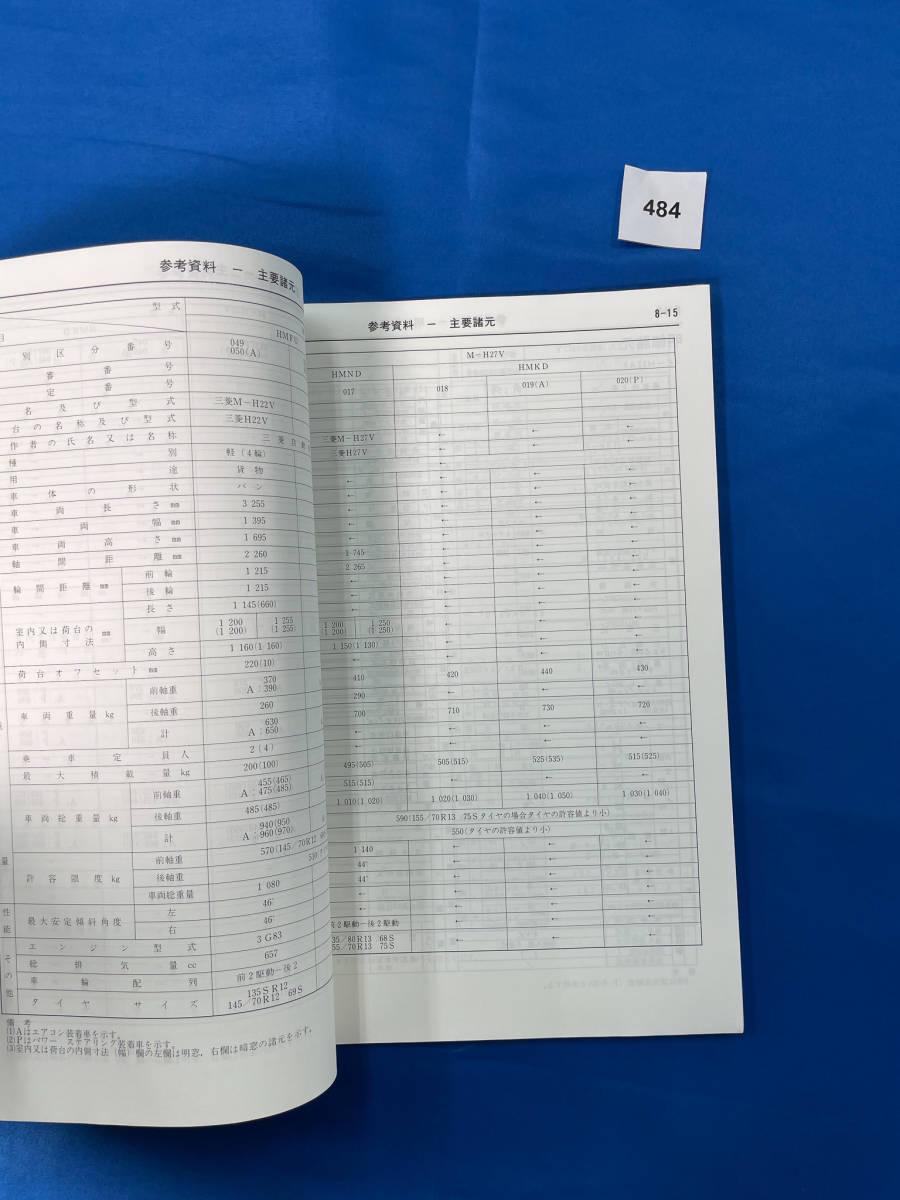 484
参考資料 － 主要諸元
型式
HMFU
別区分番号 049
050(A)
番号
定番号
名及び型式 三菱M－H22V
台の名称及び型式 三菱H22V
作者の氏名又は名称 三菱自
種別 軽(4輪)
用途 貨物
車体の形状 バン
車両長さmm 3 255
車両幅mm 1 395
車両高さmm 1 695
軸間距離mm 2 260
輪間距離mm 前輪 1 215
後輪 1 215
室内又は荷台の内側寸法mm 長さ 1 145(660)
幅 1 200(1 200) 1 255(1 255)
高さ 1 160(1 160)
荷台オフセットmm 220(10)
車両重量kg 前軸重 370
A：390
後軸重 260
計 630
A：650
乗車定員人 2(4)
最大積載量kg 200(100)
車両総重量kg 前軸重 455(465)
A：475(485)
後軸重 485(485)
計 940(950
A：960(970)
許容限度kg 前軸重 570(145／70R12
後軸重 510
車両総重量 1 080
最大安定傾斜角度 左 46°
右 46°
性能
エンジン型式 3G83
総排気量cc 657
車輪配列 前2駆動－後2
タイヤサイズ 135SR12
145／70R12 69S
その他
備考
(1)Aはエアコン装着車を示す。
(2)Pはパワー ステアリング装着車を示す。
(3)室内又は荷台の内側寸法（幅）欄の左欄は明窓，右欄は暗窓の諸元を示す。
参考資料 － 主要諸元 8-15
M－H27V
HMND HMKD
017 018 019(A) 020(P)
三菱M－H27V ← ← ←
三菱H27V ← ← ←
1 745 ← ← ←
2 265 ← ← ←
1 200(1 200) 1 250(1 250) ← ← ←
1 150(1 130) ← ← ←
410 420 440 430
290 ← ← ←
700 710 730 720
495(505) 505(515) 525(535) 515(525)
515(515) ← ← ←
1 010(1 020) 1 020(1 030) 1 040(1 050) 1 030(1 040)
590(155／70R13 75Sタイヤの場合タイヤの許容値より小)
550(タイヤの許容値より小)
1 140 ← ← ←
44° ← ← ←
44° ← ← ←
前2駆動－後2駆動 ← ← ←
35／80R13 68S ← ← ←
55／70R13 75S